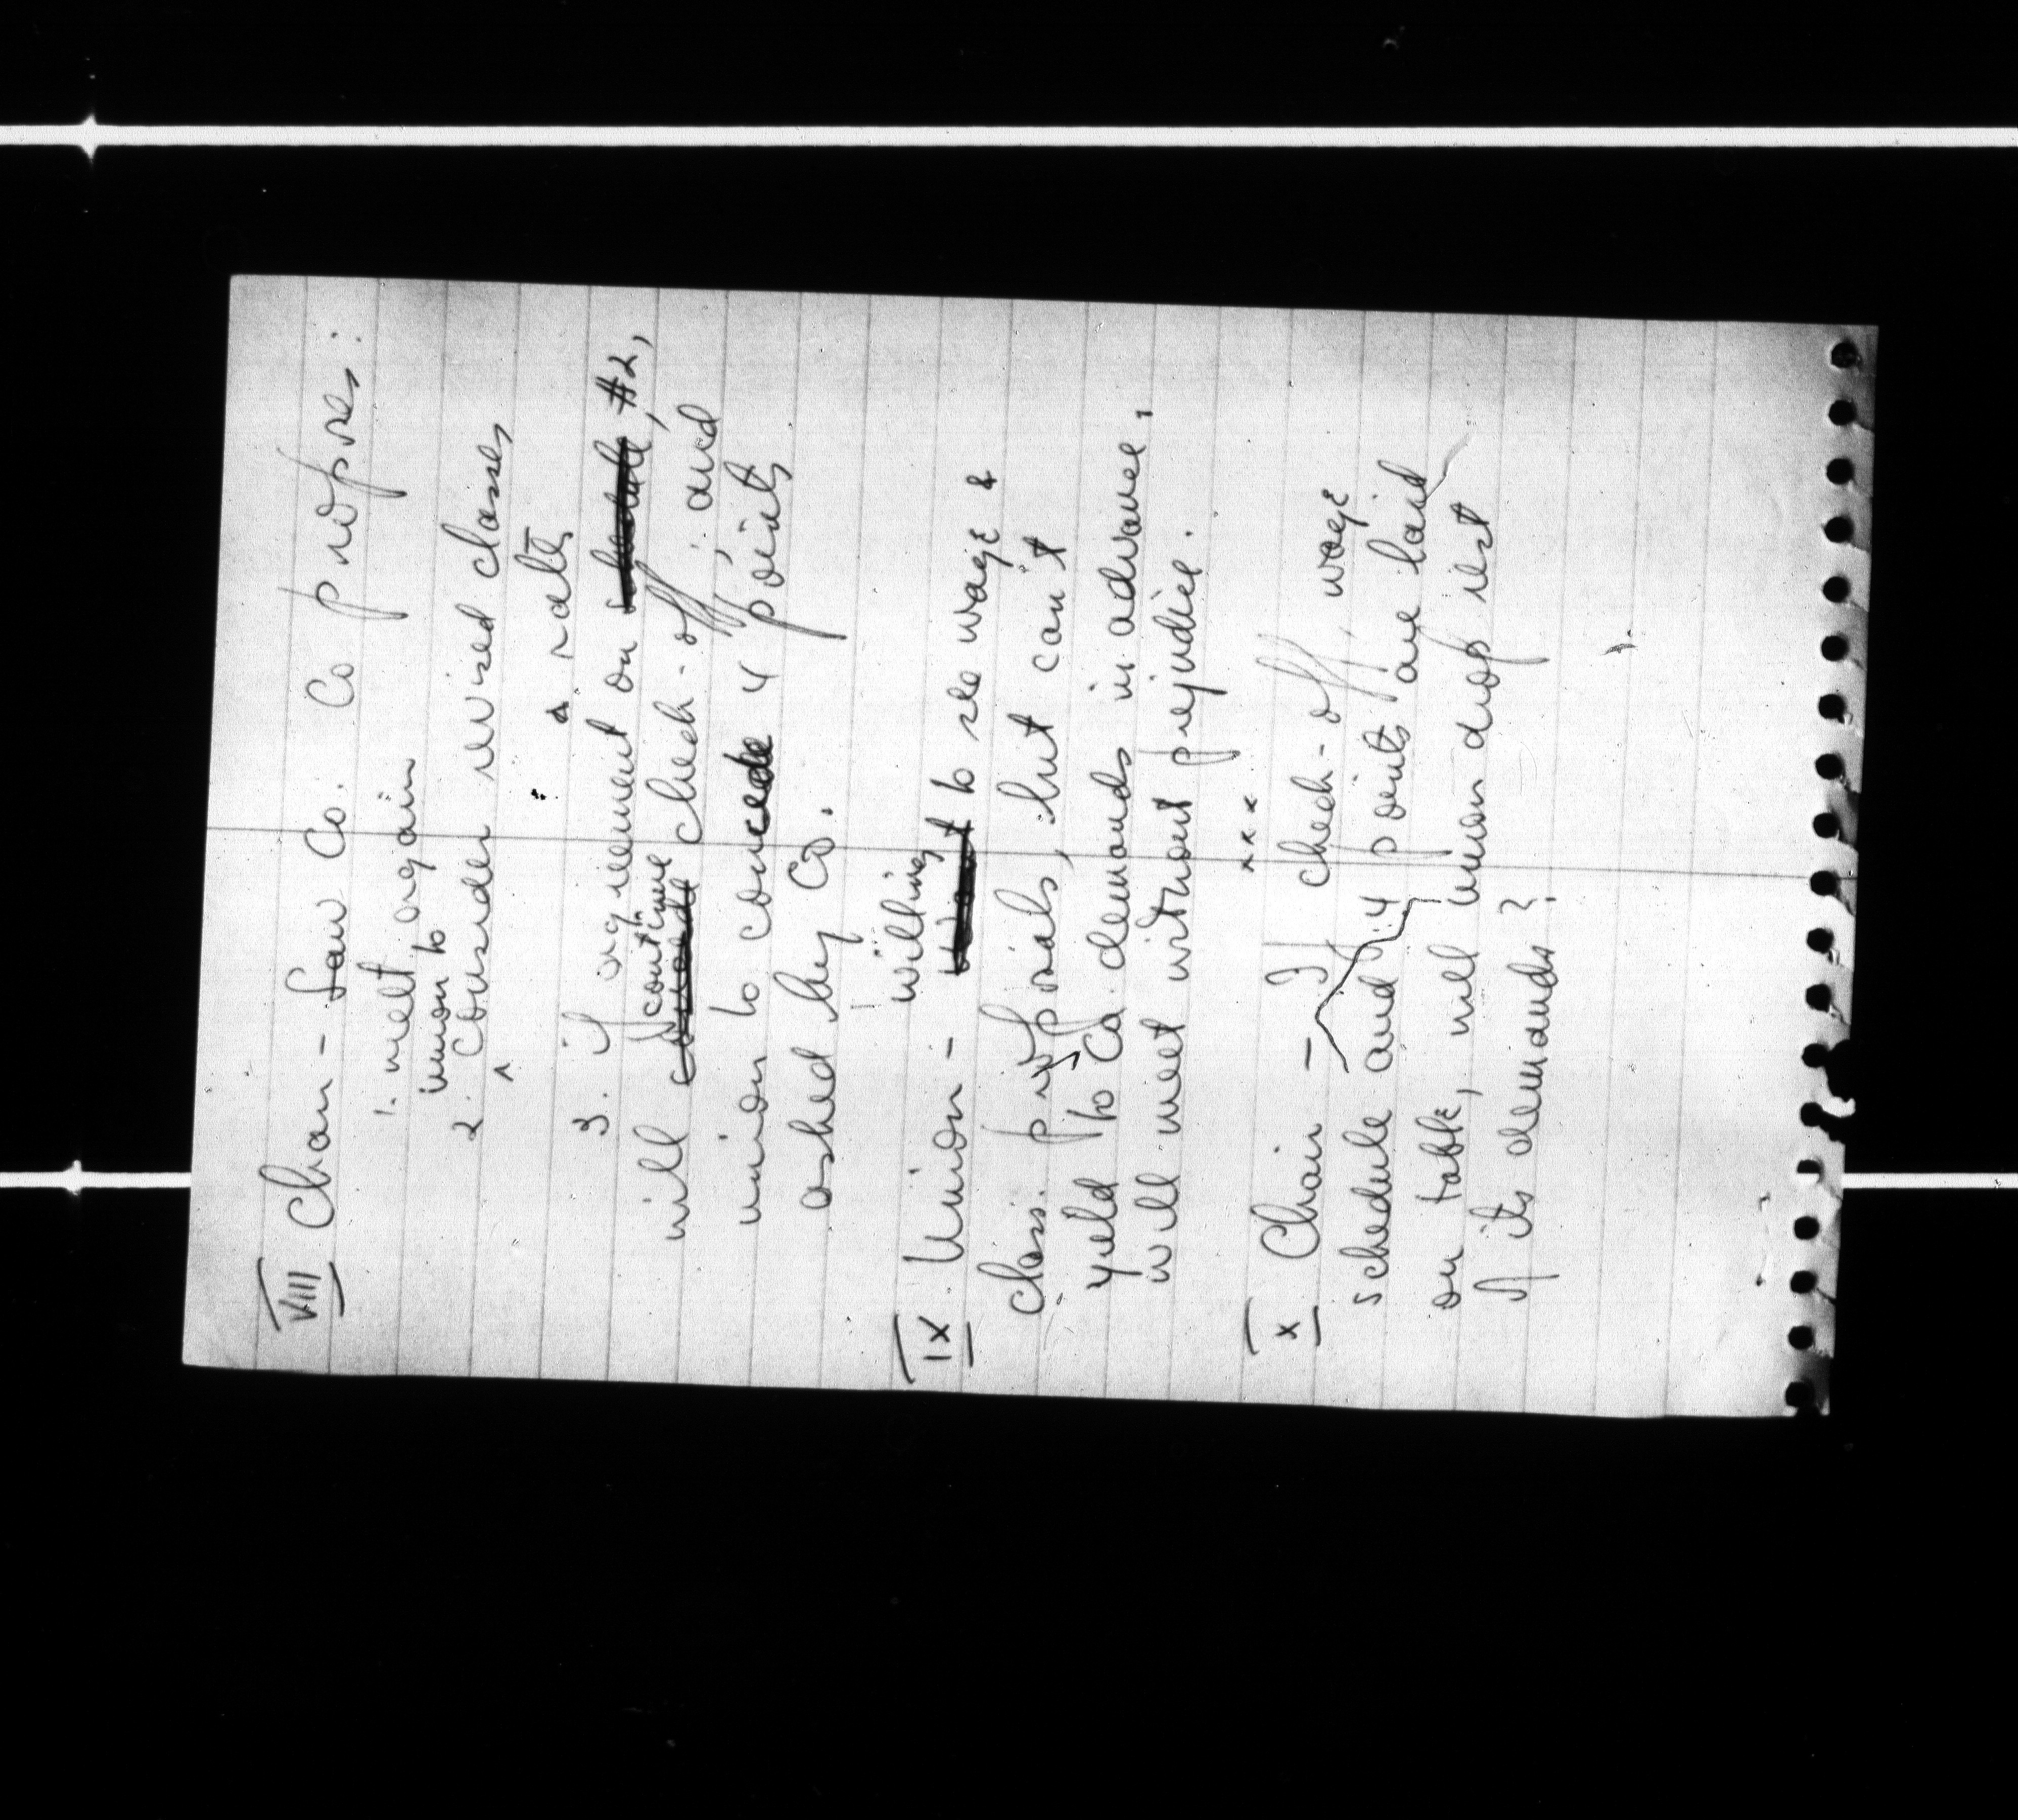 VIII Chair - Saw Co. Co proposes:
1. meet again
union to
2. consider revised classes
& rates
3. if agreement on schedule #2,
continue
will concede check-off; and
union to concede 4 points
asked by Co.
willing
IX Union - want to see wage &
class. proposals, but can't
yield to Co. demands in advance,
will meet without prejudice.
x x x
X Chair - If check-off, wage
schedule and 4 points are laid
on table, will union drop rest
of its demands?